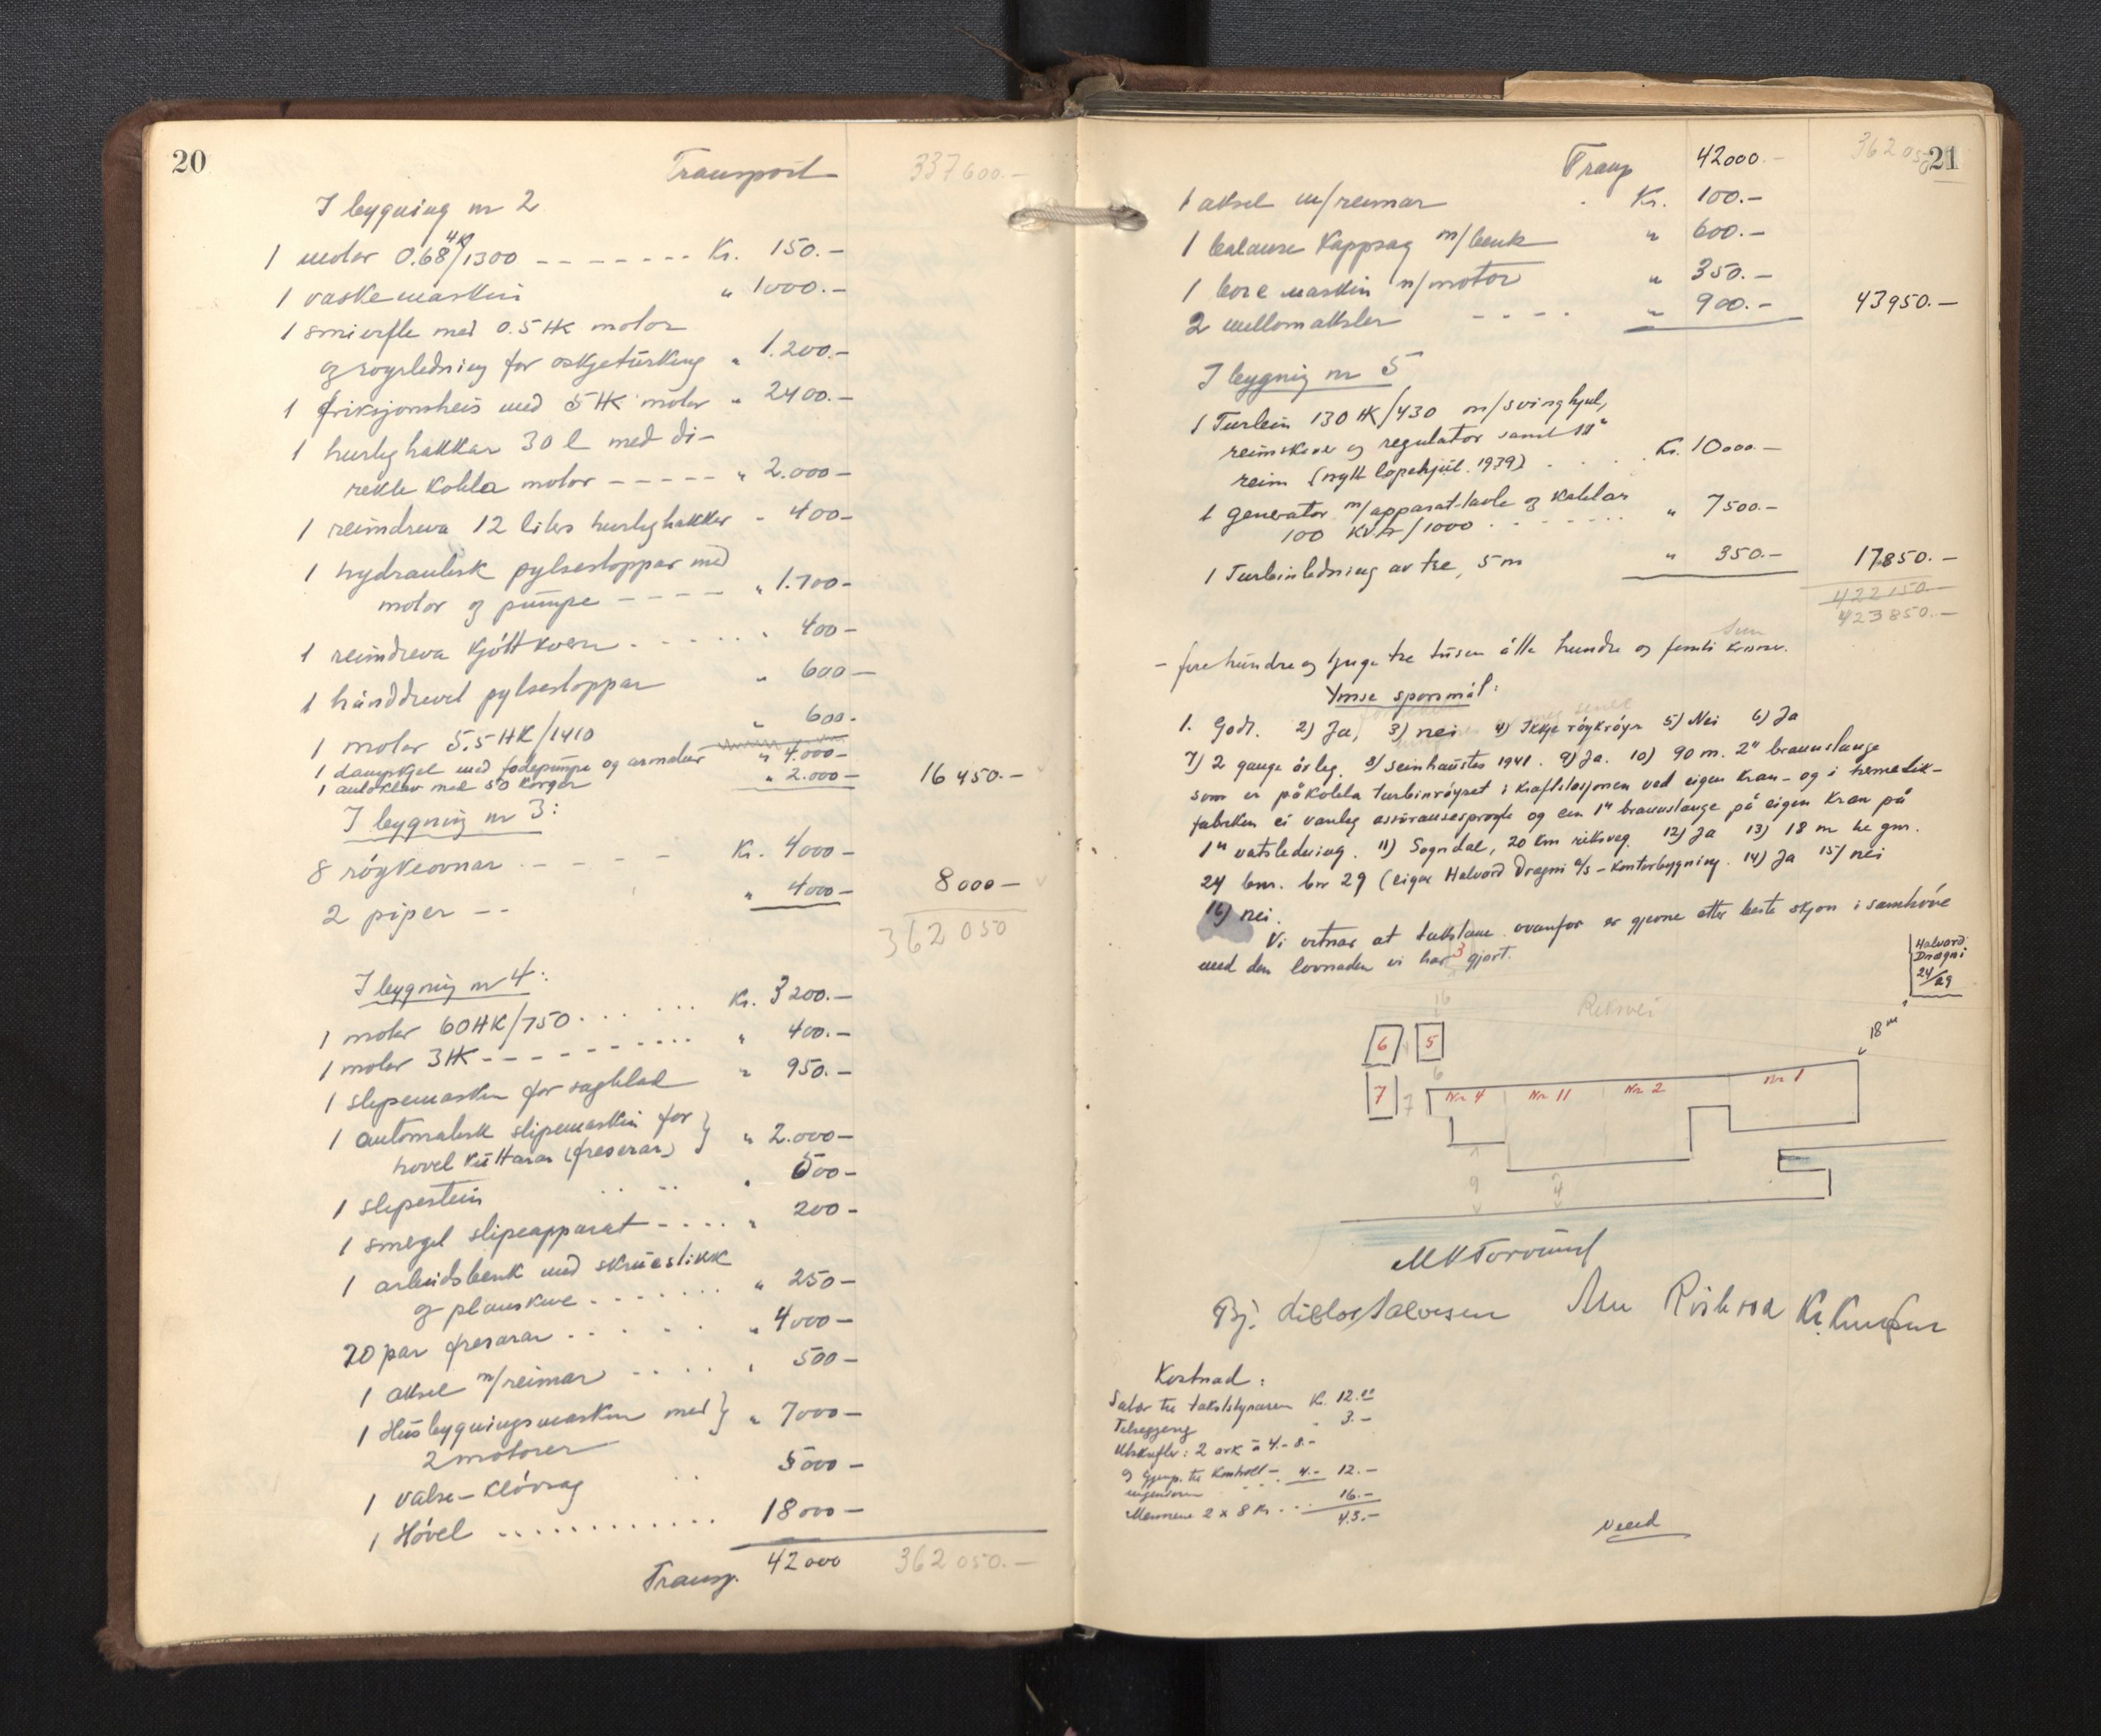 20
Transport 337600.-
I bygning nr 2
1 motor 0.68 HK/1300 - - - - - - - Kr. 150.-
1 vaskemaskin " 1000.-
1 smivifte med 0.5 HK motor
og røyrledning for oskjetürking " 1.200.-
1 friksjonsheis med 5 HK motor " 2400.-
1 hurtighakkar 30 l med di-
rekte kobla motor - - - - - " 2.000-
1 reimdreva 12 liters hurtighakkar - 400-
1 hydraulisk pylsestoppar med
motor og pumpe - - - - " 1.700-
1 reimdreva kjøttkvern . . . . . . 400-
1 hånddrevet pylsestoppar " 600-
1 motor 5,5 HK/1410 " 600.
1 dampkjel med fødepumpe og armatur " 4.000-
1 autoklav med 50 korger " 2.000- 16450.-
I bygning nr 3:
8 røykeovnar . - - - - Kr. 4000-
2 piper -- " 4000- 8000-
362050
I bygning nr 4:
1 motor 60HK/750 . . . . . . Kr. 3200.-
1 motor 3HK - - - - - - - - " 400.-
1 slipemaskin for sagblad " 950.-
1 automatisk slipemaskin for } " 2.000-
høvel kuttarar (fresarar)
1 slipestein . . . . . 600-
1 smergel slipeapparat - - . . . " 200-
1 arbeidsbenk med skruestikk
og planskive . . . . . . . " 250-
20 par fresarar . . . . . " 4000-
1 aksel m/reimar . . . . . 500-
1 Husbygningsmaskin med } " 7000-
2 motorer
1 valse-kløvsag . . 5000-
1 Høvel . . . . . . . . . . . . 18000-
Transp. 42000 362050.-
21
Transp 42000.- 362050
1 aksel m/reimar . Kr. 100.-
1 balanse kappsag m/benk " 600.-
1 boremaskin m/motor " 350.-
2 mellomaksler - - - . " 900.- 43950.-
I bygning nr 5
1 Turbin 130 HK/430 m/svinghjul,
reimskiver og regulator samt 10"
reim (nytt løpehjul 1939) . . . Kr. 10000.-
1 generator m/apparat-tavle og kablar
100 KVA/1000 . . . . . . . " 7500.-
1 Turbinledning av tre, 5 m " 350.- 17.850.-
422150.
423850.-
- fire hundre og tjuge tre tusen åtte hundre og femti kroner.
Ymse spørsmål:
1. Godt. 2) Ja, 3) nei 4) Ikkje røykrøyr 5) Nei 6) Ja
7) 2 gange årleg. 8) seinhaustes 1941. 9) Ja. 10) 90 m. 2" brannslange
som er påkobla turbinrøyret i kraftstasjonen ved eigen kran - og i hermetik-
fabriken ei vanleg assuransesprøyte og ein 1" brannslange på eigen kran på
1" vatsledning. 11) Sogndal, 20 km riksveg. 12) Ja 13) 18 m he gnr.
24 bnr. bnr 29 (eigar Halvard Dragni A/S - kontorbygning. 14) Ja 15) nei
16) nei.
Vi vitnar at takstane ovanfor er gjevne etter beste skjøn i samhøve
med den lovnaden vi har gjort.
Halvard
Dragni
24/29
3
16
Riksvei
18 m
6 5
6
7 7
Nr 4 Nr 11 Nr 2 Nr 1
9 4
Kostnad:
Salær til takststyraren Kr. 12.00
Tilleggjeng " 3.-
Utskrifter: 2 ark à 4.- 8.-
og gjenp. til kontroll- 4.- 12.-
ingeniøren
Mennene 2 x 8 Kr. . . . 16.-
43.-
Vend